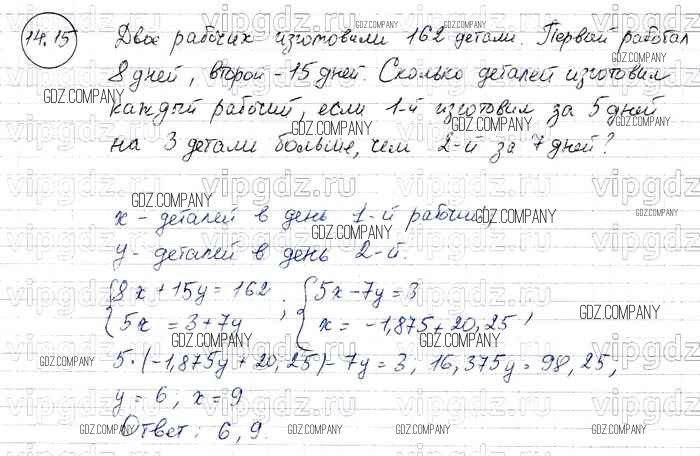 14.15 Двое рабочих изготовили 162 детали. Первый работал
8 дней, второй - 15 дней. Сколько деталей изготовил
каждый рабочий, если 1-й изготовил за 5 дней
на 3 детали больше, чем 2-й за 7 дней?
x - деталей в день 1-й рабочий,
y - деталей в день 2-й.
{8x + 15y = 162 ; {5x - 7y = 3
{5x = 3 + 7y {x = -1,875 + 20,25 ,
5·(-1,875y + 20,25) - 7y = 3; 16,375y = 98,25,
y = 6, x = 9
Ответ: 6, 9.
GDZ.COMPANY
vipgdz.ru